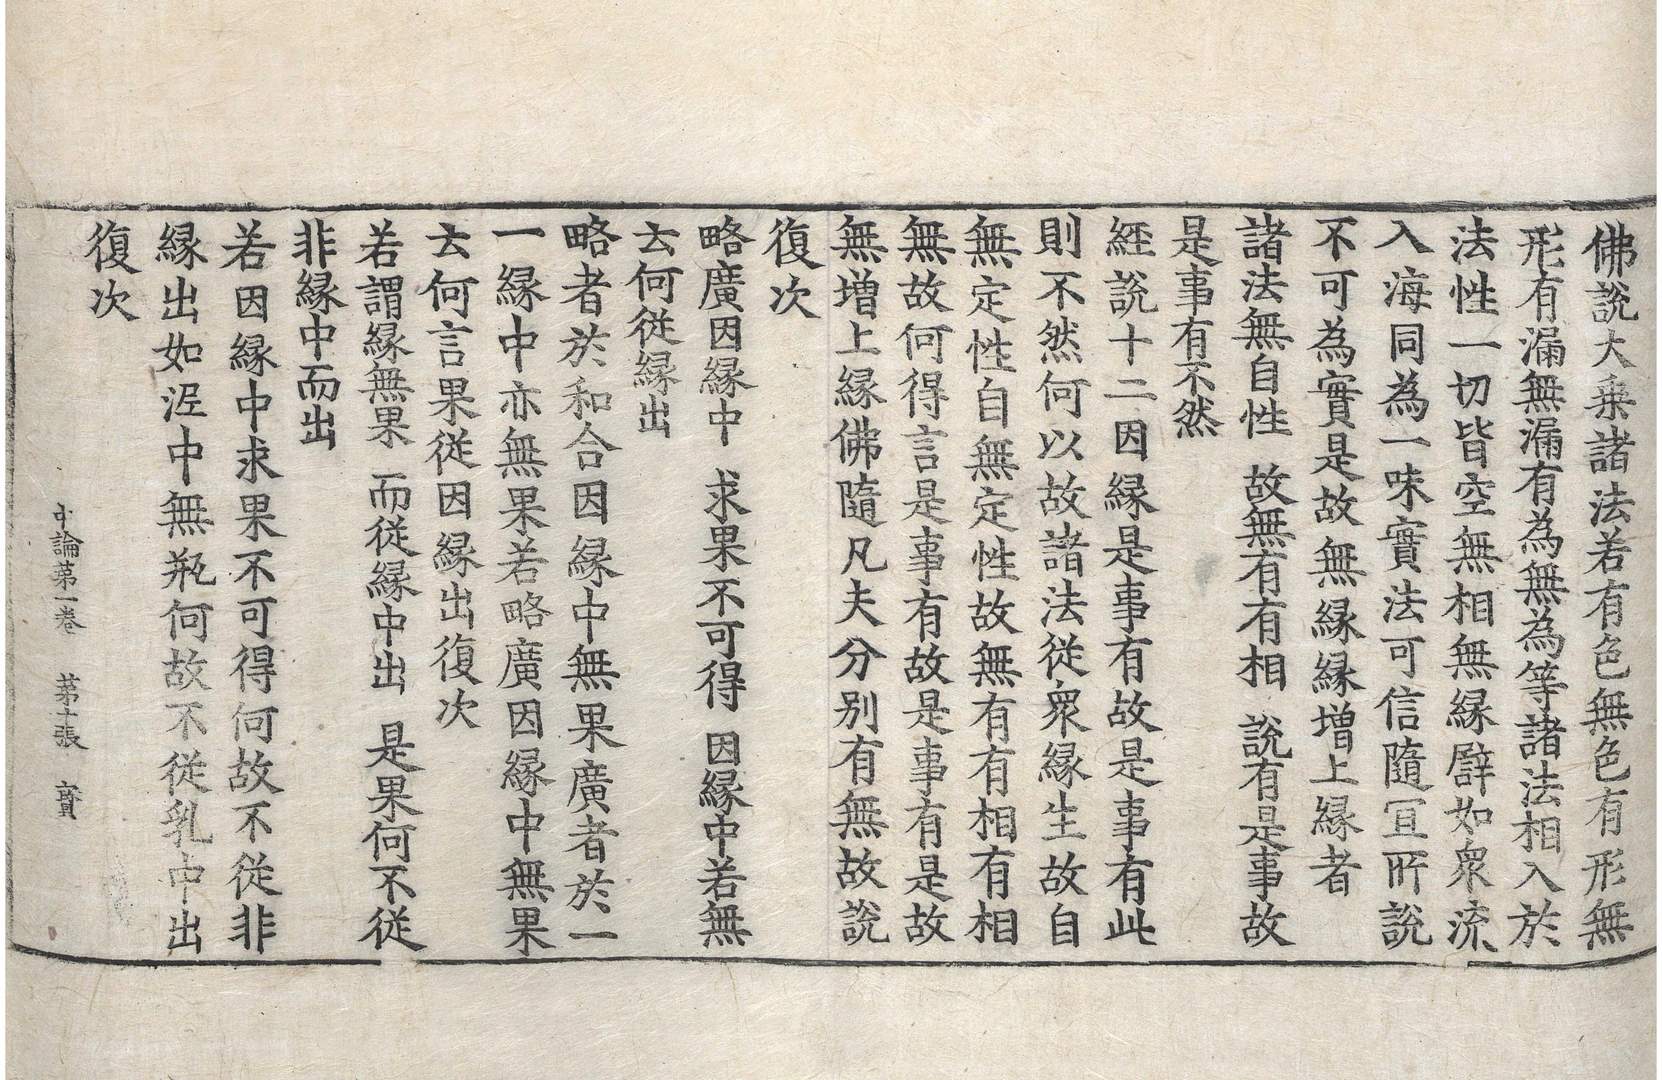 佛說大乘諸法若有色無色有形無
形有漏無漏有為無為等諸法相入於
法性一切皆空無相無緣譬如衆流
入海同為一味實法可信隨宜所說
不可為實是故無緣緣增上緣者
諸法無自性 故無有有相 說有是事故
是事有不然
經說十二因緣是事有故是事有此
則不然何以故諸法從衆緣生故自
無定性自無定性故無有有相有相
無故何得言是事有故是事有是故
無增上緣佛隨凡夫分別有無故說
復次
略廣因緣中 求果不可得 因緣中若無
云何從緣出
略者於和合因緣中無果廣者於一
一緣中亦無果若略廣因緣中無果
云何言果從因緣出復次
若謂緣無果 而從緣中出 是果何不從
非緣中而出
若因緣中求果不可得何故不從非
緣出如泥中無瓶何故不從乳中出
復次
中論第一卷 第十張 賓